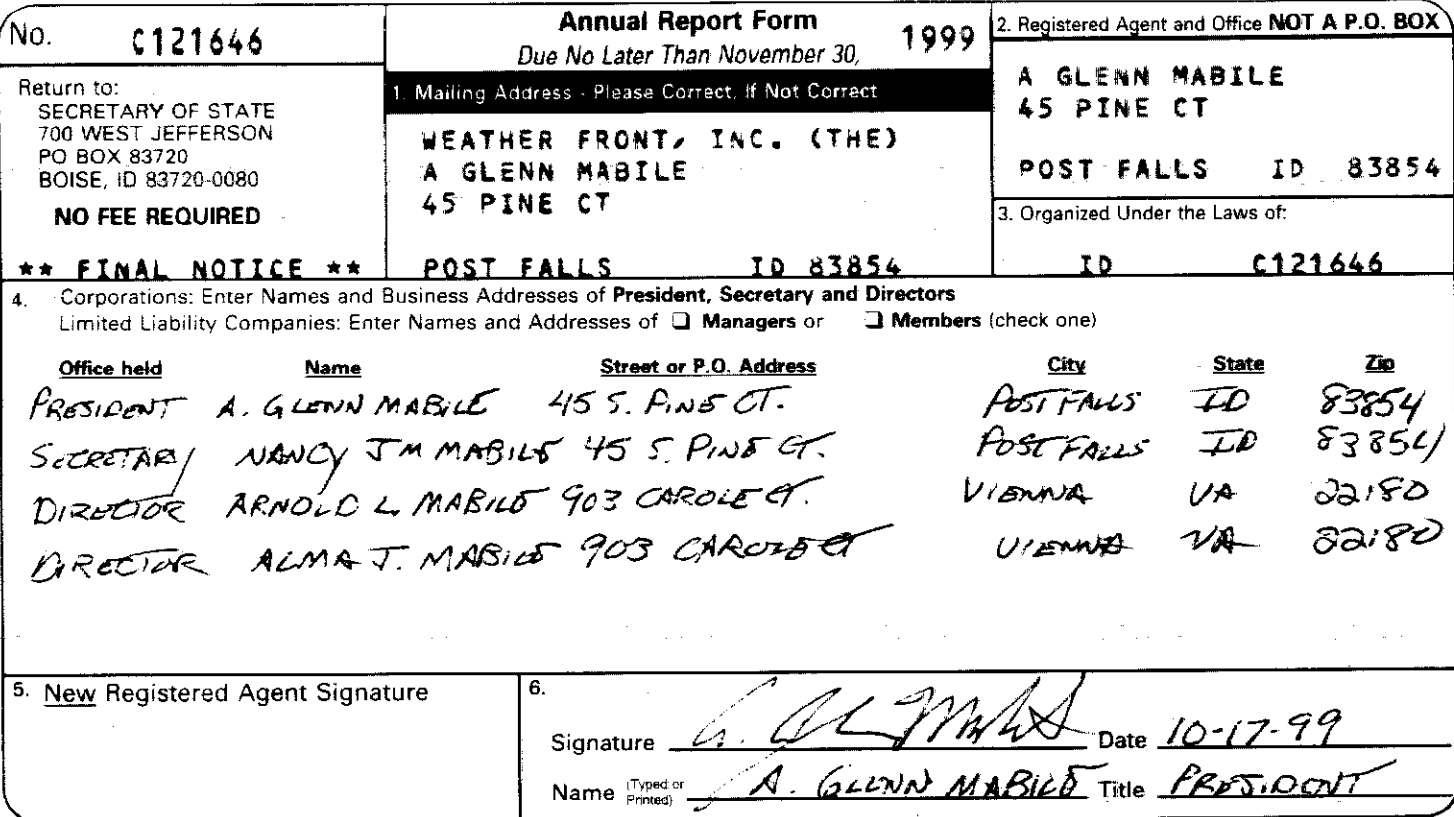 No. C121646
Return to:
SECRETARY OF STATE
700 WEST JEFFERSON
PO BOX 83720
BOISE, ID 83720-0080
NO FEE REQUIRED
** FINAL NOTICE **
Annual Report Form 1999
Due No Later Than November 30,
1. Mailing Address - Please Correct, If Not Correct
WEATHER FRONT, INC. (THE)
A GLENN MABILE
45 PINE CT
POST FALLS ID 83854
2. Registered Agent and Office NOT A P.O. BOX
A GLENN MABILE
45 PINE CT
POST FALLS ID 83854
3. Organized Under the Laws of:
ID C121646
4. Corporations: Enter Names and Business Addresses of President, Secretary and Directors
Limited Liability Companies: Enter Names and Addresses of ❏ Managers or ❏ Members (check one)
Office held Name Street or P.O. Address City State Zip
PRESIDENT A. GLENN MABILE 45 S. PINE CT. POST FALLS ID 83854
SECRETARY NANCY JM MABILE 45 S. PINE CT. POST FALLS ID 83854
DIRECTOR ARNOLD L. MABILE 903 CAROLE CT. VIENNA VA 22180
DIRECTOR ALMA J. MABILE 903 CAROLE CT VIENNA VA 22180
5. New Registered Agent Signature
6.
Signature A. Glenn Mabile Date 10-17-99
Name (Typed or Printed) A. GLENN MABILE Title PRESIDENT